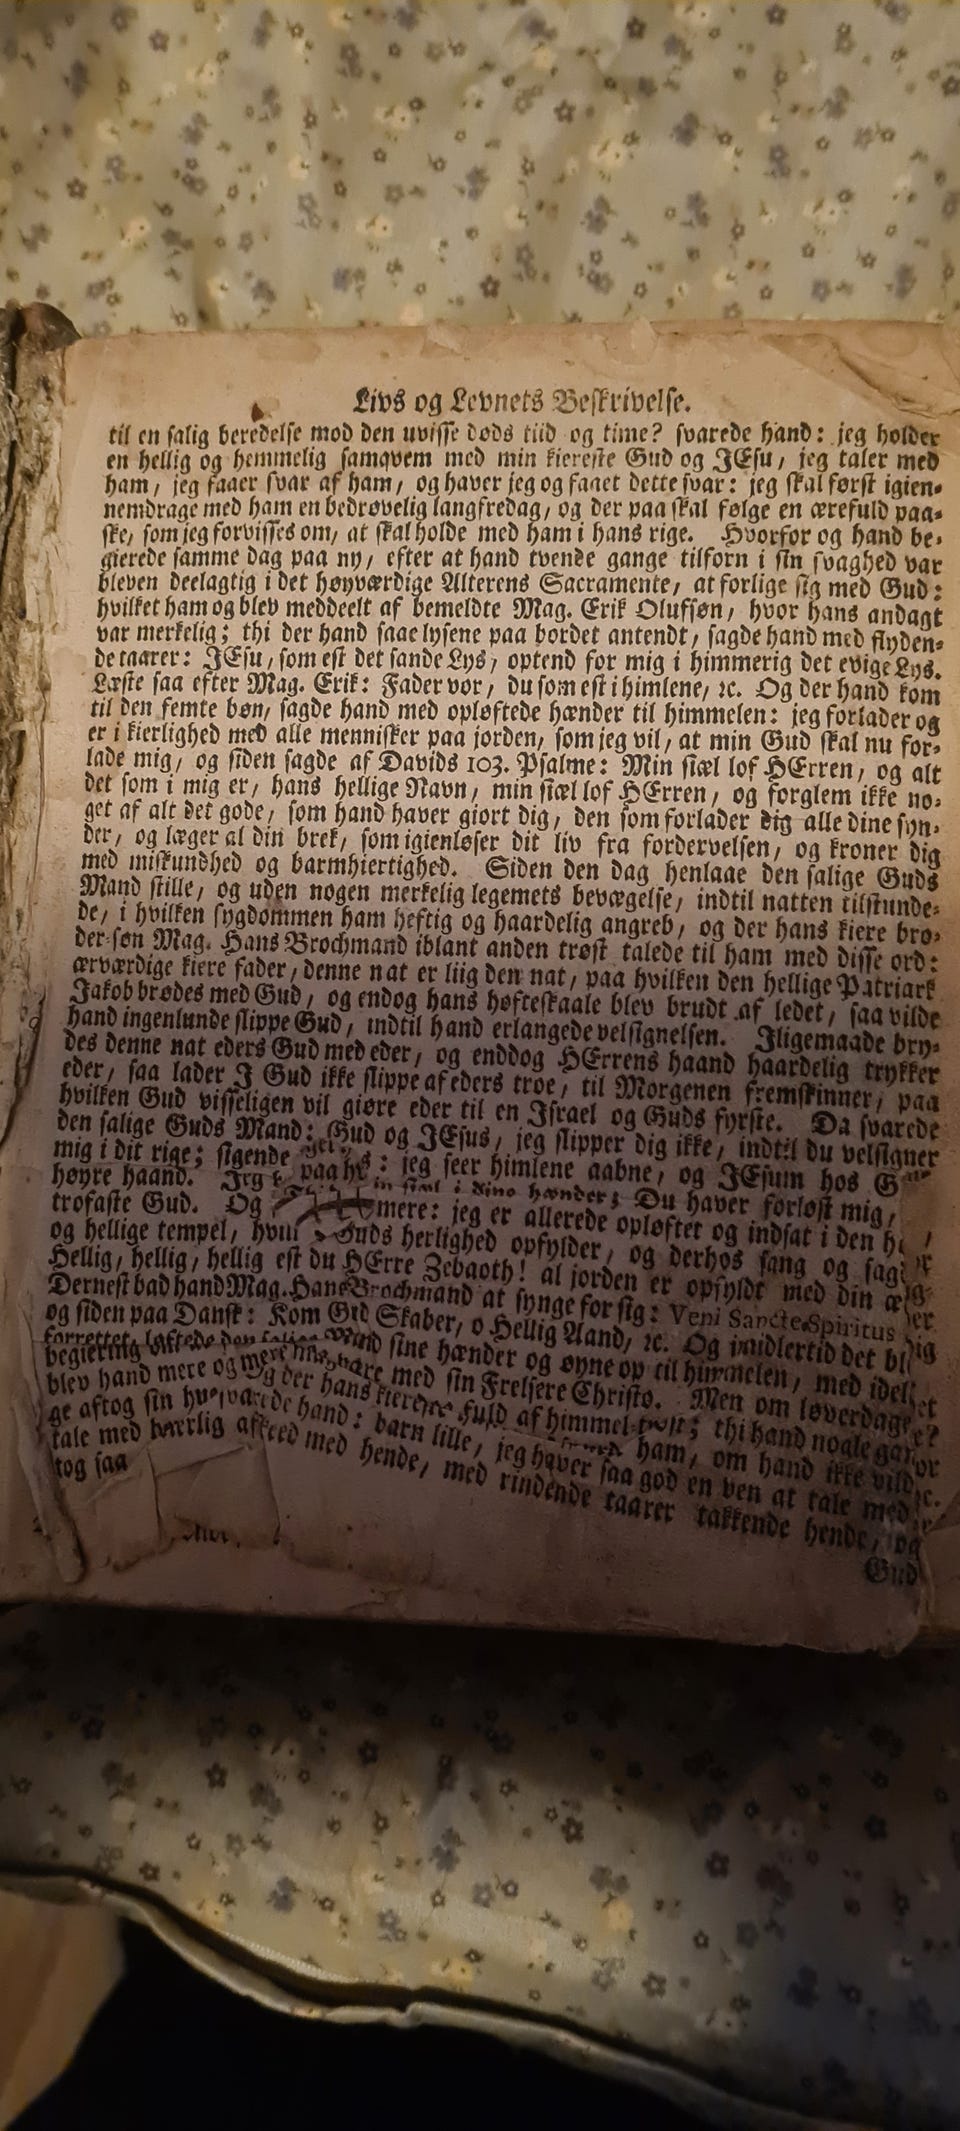 Livs og Levnets Beskrivelse.
til en salig beredelse mod den uvisse døds tiid og time? svarede hand: jeg holder
en hellig og hemmelig samqvem med min kiereste Gud og JEsu, jeg taler med
ham, jeg faaer svar af ham, og haver jeg og faaet dette svar: jeg skal først igien-
nemdrage med ham en bedrøvelig langfredag, og der paa skal følge en ærefuld paa-
ske, som jeg forvisses om, at skal holde med ham i hans rige. Hvorfor og hand be-
gierede samme dag paa ny, efter at hand tvende gange tilforn i sin svaghed var
bleven deelagtig i det høyværdige Alterens Sacramente, at forlige sig med Gud:
hvilket ham og blev meddeelt af bemeldte Mag. Erik Olufsøn, hvor hans andagt
var merkelig; thi der hand saae lysene paa bordet antendt, sagde hand med flyden-
de taarer: JEsu, som est det sande Lys, optend for mig i himmerig det evige Lys.
Læste saa efter Mag. Erik: Fader vor, du som est i himlene, ꝛc. Og der hand kom
til den femte bøn, sagde hand med opløftede hænder til himmelen: jeg forlader og
er i kierlighed med alle mennisker paa jorden, som jeg vil, at min Gud skal nu for-
lade mig, og siden sagde af Davids 103. Psalme: Min siæl lof HErren, og alt
det som i mig er, hans hellige Navn, min siæl lof HErren, og forglem ikke no-
get af alt det gode, som hand haver giort dig, den som forlader dig alle dine syn-
der, og læger al din brek, som igienløser dit liv fra fordervelsen, og kroner dig
med miskundhed og barmhiertighed. Siden den dag henlaae den salige Guds
Mand stille, og uden nogen merkelig legemets bevægelse, indtil natten tilstunde-
de, i hvilken sygdommen ham heftig og haardelig angreb, og der hans kiere bro-
der-søn Mag. Hans Brochmand iblant anden trøst talede til ham med disse ord:
ærværdige kiere fader, denne nat er liig den nat, paa hvilken den hellige Patriark
Jakob brødes med Gud, og endog hans hofteskaale blev brudt af ledet, saa vilde
hand ingenlunde slippe Gud, indtil hand erlangede velsignelsen. Jligemaade bry-
des denne nat eders Gud med eder, og enddog HErrens haand haardelig trykker
eder, saa lader J Gud ikke slippe af eders troe, til Morgenen fremskinner, paa
hvilken Gud visseligen vil giøre eder til en Jsrael og Guds fyrste. Da svarede
den salige Guds Mand: Gud og JEsus, jeg slipper dig ikke, indtil du velsigner
mig i dit rige; sigende : jeg seer himlene aabne, og JEsum hos
høyre haand. siæl i dine hænder; Du haver forløst mig,
trofaste Gud. Og mere: jeg er allerede opløftet og indsat i den
og hellige tempel, Guds herlighed opfylder, og derhos sang og
Hellig, hellig, hellig est du HErre Zebaoth! al jorden er opfyldt med din
Dernest bad hand Mag. Hans Brochmand at synge for sig: Veni Sancte Spiritus
og siden paa Dansk: Kom Gud Skaber, o Hellig Aand, ꝛc. Og imidlertid det
forrettet, løftede den salige Mand sine hænder og øyne op til himmelen, med
begiering med sin Frelsere Christo. Men om løverdagen
blev hand mere og mere fuld af himmel-trøst; thi hand noale
ge aftog sin Og der hans kiereste ham, om hand ikke
tale med svarede hand: barn lille, jeg haver saa god en ven at tale med
tog saa kærlig afskeed med hende, med rindende taarer takkende hende, og
Gud